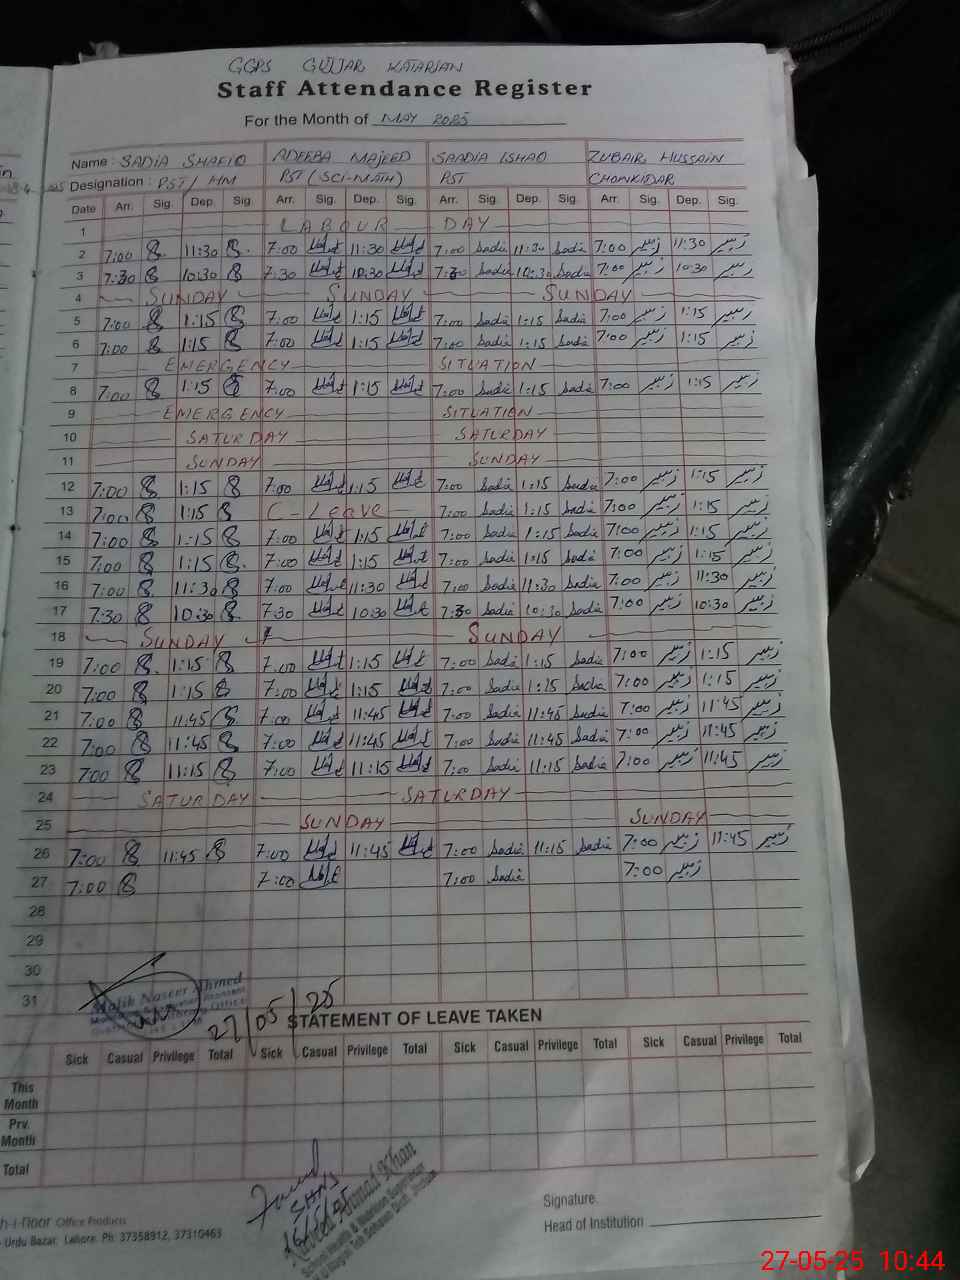 GGPS GUJJAR KATARIAN
Staff Attendance Register
For the Month of MAY 2025
Name : SADIA SHAFIQ ADEEBA MAJEED SAADIA ISHAQ ZUBAIR HUSSAIN
Designation : PST/HM PST (SCI-MATH) PST CHOWKIDAR
Date Arr. Sig. Dep. Sig. Arr. Sig. Dep. Sig. Arr. Sig. Dep. Sig. Arr. Sig. Dep. Sig.
1 LABOUR DAY
2 7:00 11:30 7:00 11:30 7:00 Sadia 11:30 Sadia 7:00 زبیر 11:30 زبیر
3 7:30 10:30 7:30 10:30 7:30 Sadia 10:30 Sadia 7:00 زبیر 10:30 زبیر
4 SUNDAY SUNDAY SUNDAY
5 7:00 1:15 7:00 1:15 7:00 Sadia 1:15 Sadia 7:00 زبیر 1:15 زبیر
6 7:00 1:15 7:00 1:15 7:00 Sadia 1:15 Sadia 7:00 زبیر 1:15 زبیر
7 EMERGENCY SITUATION
8 7:00 1:15 7:00 1:15 7:00 Sadia 1:15 Sadia 7:00 زبیر 1:15 زبیر
9 EMERGENCY SITUATION
10 SATURDAY SATURDAY
11 SUNDAY SUNDAY
12 7:00 1:15 7:00 1:15 7:00 Sadia 1:15 Sadia 7:00 زبیر 1:15 زبیر
13 7:00 1:15 C-Leave 7:00 Sadia 1:15 Sadia 7:00 زبیر 1:15 زبیر
14 7:00 1:15 7:00 1:15 7:00 Sadia 1:15 Sadia 7:00 زبیر 1:15 زبیر
15 7:00 1:15 7:00 1:15 7:00 Sadia 1:15 Sadia 7:00 زبیر 1:15 زبیر
16 7:00 11:30 7:00 11:30 7:00 Sadia 11:30 Sadia 7:00 زبیر 11:30 زبیر
17 7:30 10:30 7:30 10:30 7:30 Sadia 10:30 Sadia 7:00 زبیر 10:30 زبیر
18 SUNDAY SUNDAY
19 7:00 1:15 7:00 1:15 7:00 Sadia 1:15 Sadia 7:00 زبیر 1:15 زبیر
20 7:00 1:15 7:00 1:15 7:00 Sadia 1:15 Sadia 7:00 زبیر 1:15 زبیر
21 7:00 11:45 7:00 11:45 7:00 Sadia 11:45 Sadia 7:00 زبیر 11:45 زبیر
22 7:00 11:45 7:00 11:45 7:00 Sadia 11:45 Sadia 7:00 زبیر 11:45 زبیر
23 7:00 11:15 7:00 11:15 7:00 Sadia 11:15 Sadia 7:00 زبیر 11:45 زبیر
24 SATURDAY SATURDAY
25 SUNDAY SUNDAY
26 7:00 11:45 7:00 11:45 7:00 Sadia 11:15 Sadia 7:00 زبیر 11:45 زبیر
27 7:00 7:00 7:00 Sadia 7:00 زبیر
28
29
30
31
Malik Naseer Ahmed
27/05/25
STATEMENT OF LEAVE TAKEN
Sick Casual Privilege Total Sick Casual Privilege Total Sick Casual Privilege Total Sick Casual Privilege Total
This Month
Prv. Month
Total
SHNS
Ahmad Khan
School Health & Nutrition Supervisor
Signature.
Head of Institution
h-i-noor Office Products
Urdu Bazar, Lahore. Ph: 37358912, 37310463
27-05-25 10:44